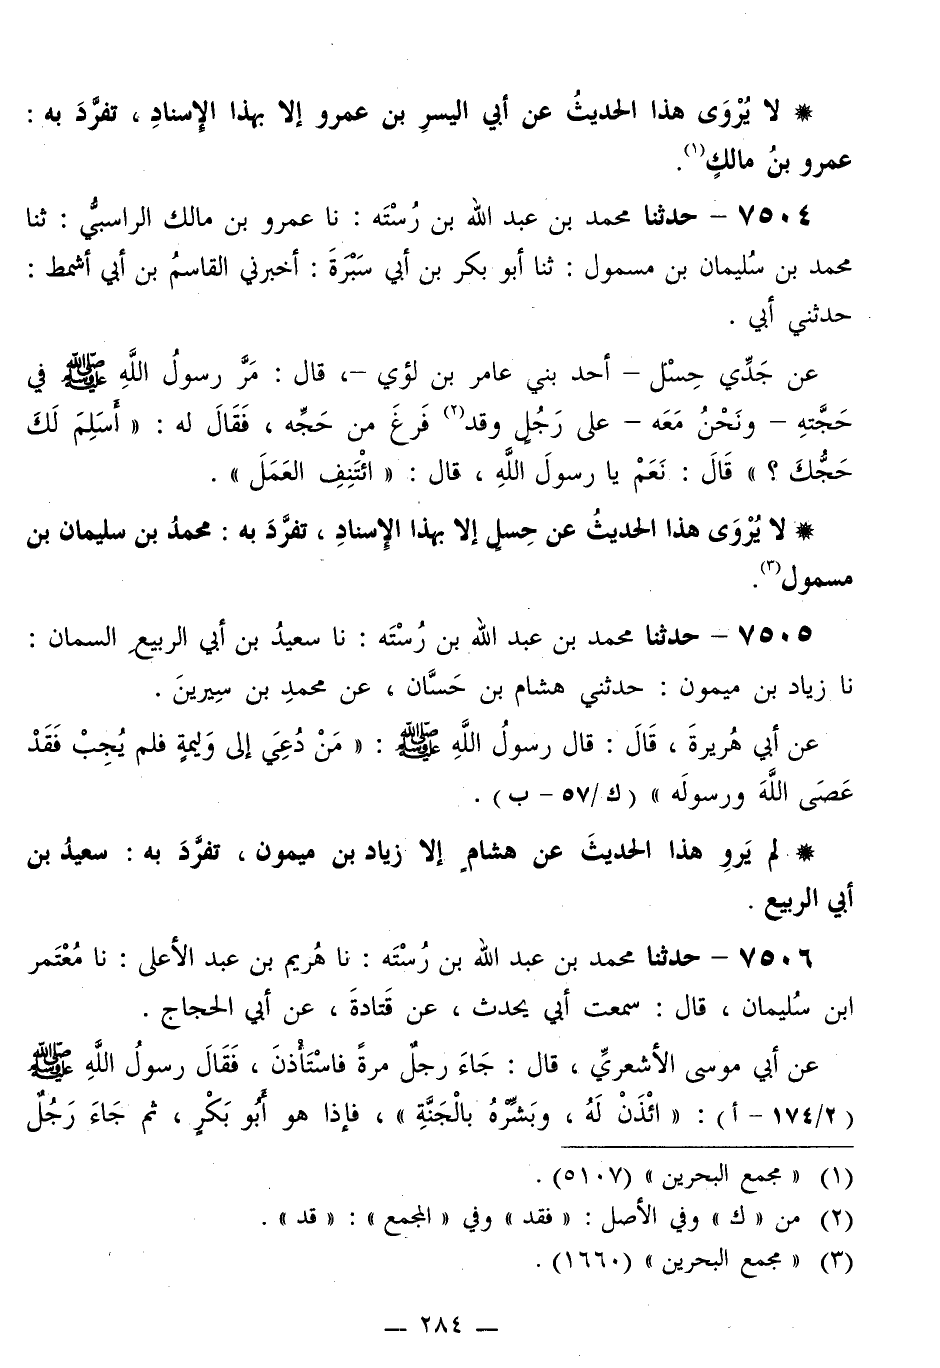 * لا يُرْوَى هذا الحديثُ عن أبي اليسرِ بن عمرو إلا بهذا الإسنادِ ، تفرَّدَ به :
عمرو بنُ مالكٍ(١).
٧٥٠٤ – حدثنا محمد بن عبد الله بن رُسْتَه : نا عمرو بن مالك الراسبيُّ : ثنا
محمد بن سُليمان بن مسمول : ثنا أبو بكر بن أبي سَبْرَةَ : أخبرني القاسمُ بن أبي أشمط :
حدثني أبي .
عن جَدِّي حِسْل – أحد بني عامر بن لؤي –، قال : مَرَّ رسولُ اللَّهِ ﷺ في
حَجَّتهِ – ونَحْنُ مَعَه – على رَجُلٍ وقد(٢) فَرغَ من حَجِّه ، فَقَالَ له : « أَسَلِمَ لَكَ
حَجُّكَ ؟ » قَالَ : نَعَمْ يا رسولَ اللَّهِ ، قال : « ائْتَنِفِ العَمَلَ » .
* لا يُرْوَى هذا الحديثُ عن حِسلٍ إلا بهذا الإسنادِ ، تفرَّدَ به : محمدُ بن سليمان بن
مسمول(٣).
٧٥٠٥ – حدثنا محمد بن عبد الله بن رُسْتَه : نا سعيدُ بن أبي الربيعِ السمان :
نا زياد بن ميمون : حدثني هشام بن حَسَّان ، عن محمدِ بن سِيرينَ .
عن أبي هُريرةَ ، قَالَ : قال رسولُ اللَّهِ ﷺ : « مَنْ دُعِيَ إلى وَليمةٍ فلم يُجِبْ فَقَدْ
عَصَى اللَّهَ ورسولَه » (ك/٥٧ – ب) .
* لم يَروِ هذا الحديثَ عن هشامٍ إلا زياد بن ميمون ، تفرَّدَ به : سعيدُ بن
أبي الربيع .
٧٥٠٦ – حدثنا محمد بن عبد الله بن رُسْتَه : نا هُريم بن عبد الأعلى : نا مُعْتَمر
ابن سُليمان ، قال : سمعت أبي يحدث ، عن قَتادةَ ، عن أبي الحجاج .
عن أبي موسى الأشعريِّ ، قال : جَاءَ رجلٌ مرةً فاسْتَأْذنَ ، فَقَالَ رسولُ اللَّهِ ﷺ
(١٧٤/٢ – أ) : « ائْذَنْ لَهُ ، وبَشِّرْهُ بالْجَنَّةِ » ، فإذا هو أَبُو بَكْرٍ ، ثم جَاءَ رَجُلٌ
(١) « مجمع البحرين » (٥١٠٧) .
(٢) من « ك » وفي الأصل : « فقد » وفي « المجمع » : « قد » .
(٣) « مجمع البحرين » (١٦٦٠) .
— ٢٨٤ —